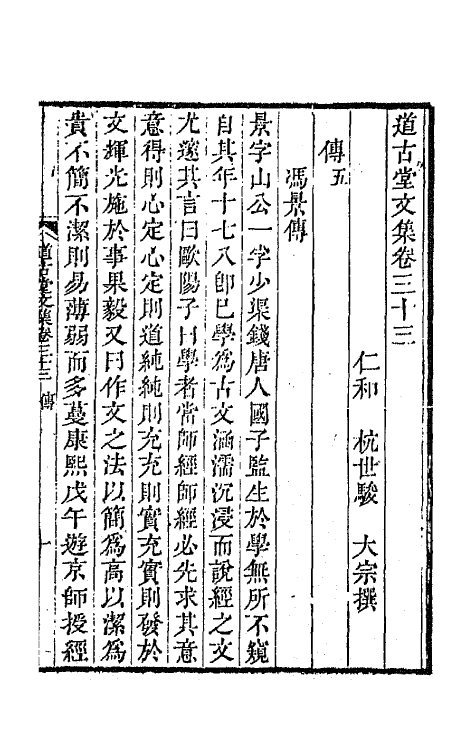 道古堂文集卷三十三
仁和　杭世駿　大宗撰
傳五
馮景傳
景字山公一字少渠錢唐人國子監生於學無所不窺
自其年十七八卽已學爲古文涵濡沉浸而說經之文
尤邃其言曰歐陽子曰學者當師經師經必先求其意
意得則心定心定則道純純則充充則實充實則發於
文輝光施於事果毅又曰作文之法以簡爲高以潔爲
貴不簡不潔則易薄弱而多蔓康熙戊午遊京師授經
道古堂文集卷三十三　傳　一